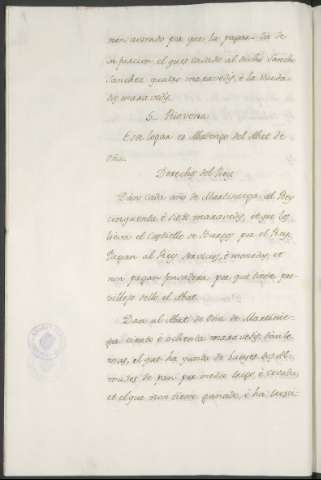 non morado por que la pagan
el que es casado al dicho Sancho
Sanchez quatro maravedis, e la viuda
dos maravedis.
S. Riovena
Este logar es Abadengo del Abat de
Oña.
Derechos del Rey
Dan cada año de Martiniega al Rey
cinquenta e siete maravedis, et que los
lieva el Castiello de Burgos por el Rey.
Pagan al Rey servicios, e monedas et
non pagan fonsadera por que tiene pre-
villejo dello el Abat.
Dan al Abat de Oña de Martinie-
ga ciento e ochenta maravedis,
mas, el que ha yunta de bueyes
de pan por medio trigo, e cevada,
et el que non tiene ganado, e ha